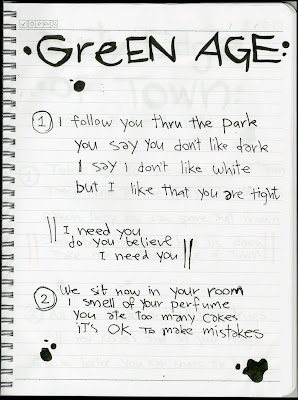 • GreEN AGE:
1 I follow you thru the park
you say you don't like dark
I say I don't like white
but I like that you are tight
|| I need you
do you believe
I need you ||
2 We sit now in your room
I smell of your perfume
you ate too many cakes
iT'S OK To make mistakes